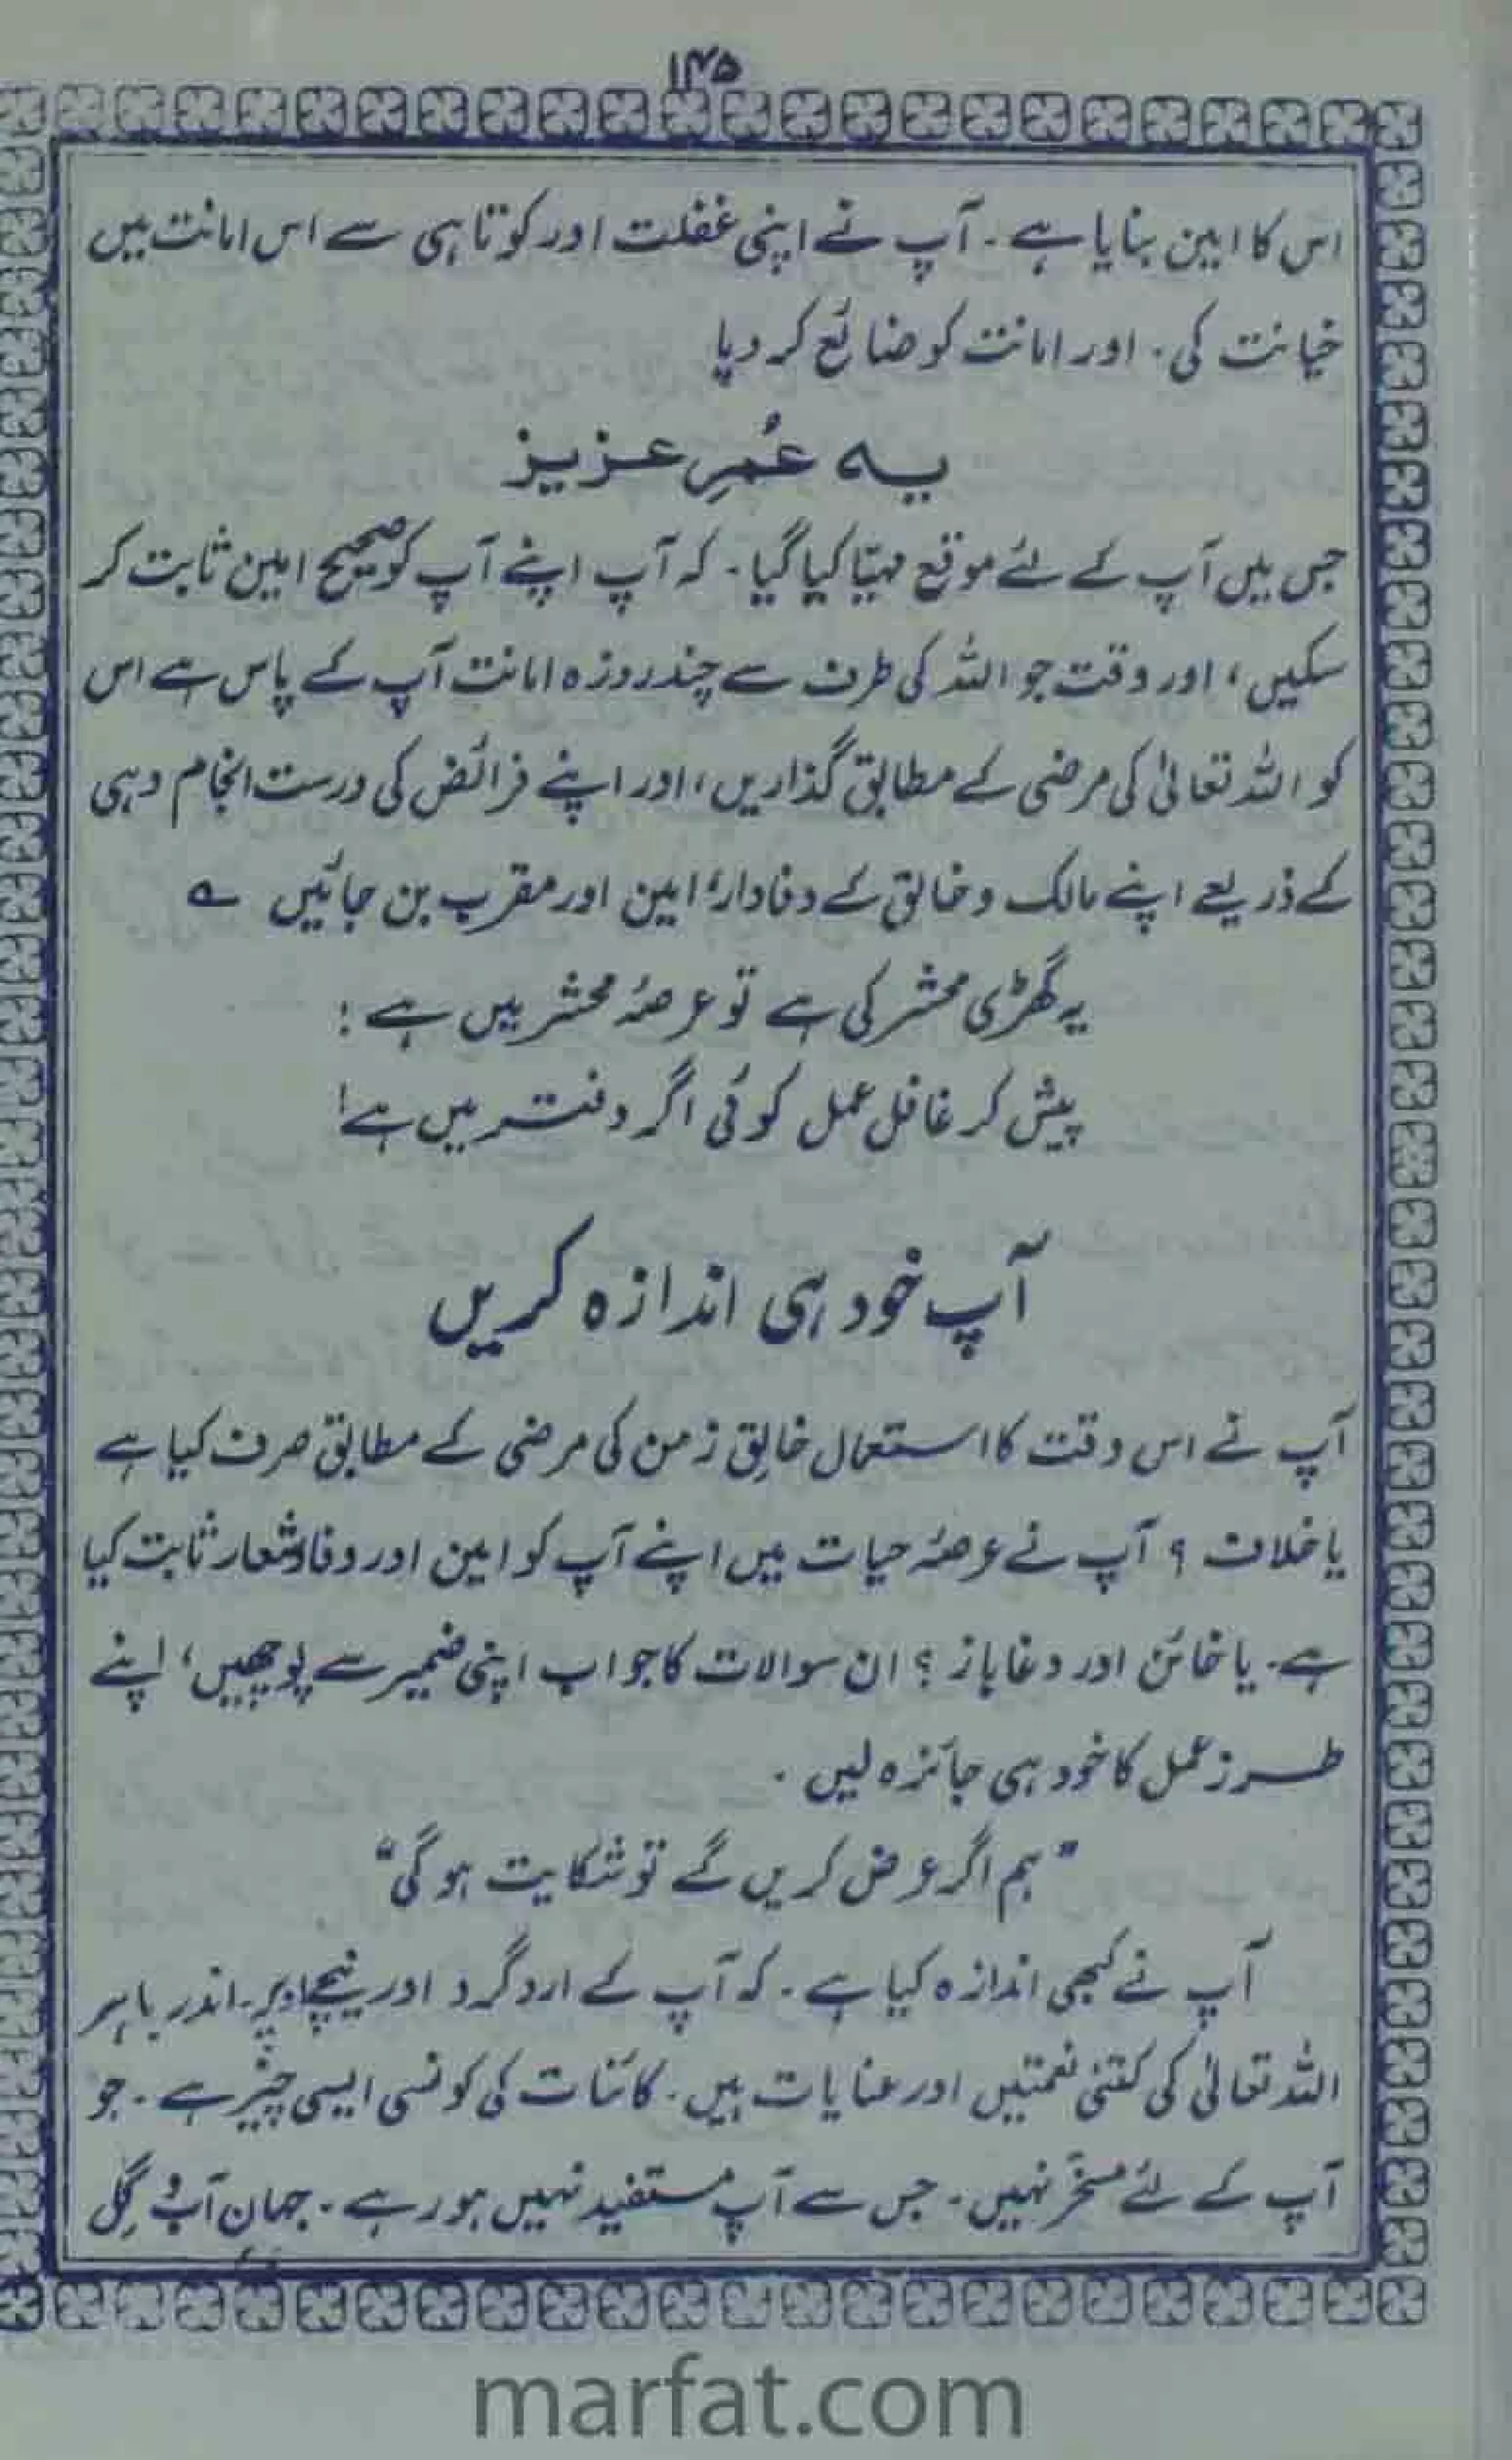 ۱۴۵
اس کا امین بنایا ہے ۔ آپ نے اپنی غفلت اور کوتاہی سے اس امانت میں
خیانت کی ۔ اور امانت کو ضائع کر دیا
یہ عُمرِ عزیز
جس میں آپ کے لئے موقع مہیّا کیا گیا ۔ کہ آپ اپنے آپ کو صحیح امین ثابت کر
سکیں ، اور وقت جو اللہ کی طرف سے چند روزہ امانت آپ کے پاس ہے اس
کو اللہ تعالیٰ کی مرضی کے مطابق گذاریں ، اور اپنے فرائض کی درست انجام دہی
کے ذریعے اپنے مالک و خالق کے وفادار، امین اور مقرب بن جائیں ؎
یہ گھڑی محشر کی ہے تو عرصۂ محشر میں ہے :
پیش کر غافل عمل کوئی اگر دفتر میں ہے !
آپ خود ہی اندازہ کریں
آپ نے اس وقت کا استعمال خالقِ زمن کی مرضی کے مطابق صرف کیا ہے
یا خلاف ؟ آپ نے عرصۂ حیات میں اپنے آپ کو امین اور وفا شعار ثابت کیا
ہے ۔ یا خائن اور دغا باز ؟ ان سوالات کا جواب اپنی ضمیر سے پوچھیں ، اپنے
طرز عمل کا خود ہی جائزہ لیں ۔
" ہم اگر عرض کریں گے تو شکایت ہو گی "
آپ نے کبھی اندازہ کیا ہے ۔ کہ آپ کے ارد گرد اور نیچے اوپر ۔ اندر باہر
اللہ تعالیٰ کی کتنی نعمتیں اور عنایات ہیں ۔ کائنات کی کونسی ایسی چیز ہے ۔ جو
آپ کے لئے مسخّر نہیں ۔ جس سے آپ مستفید نہیں ہو رہے ۔ جہانِ آب و گِل
marfat.com